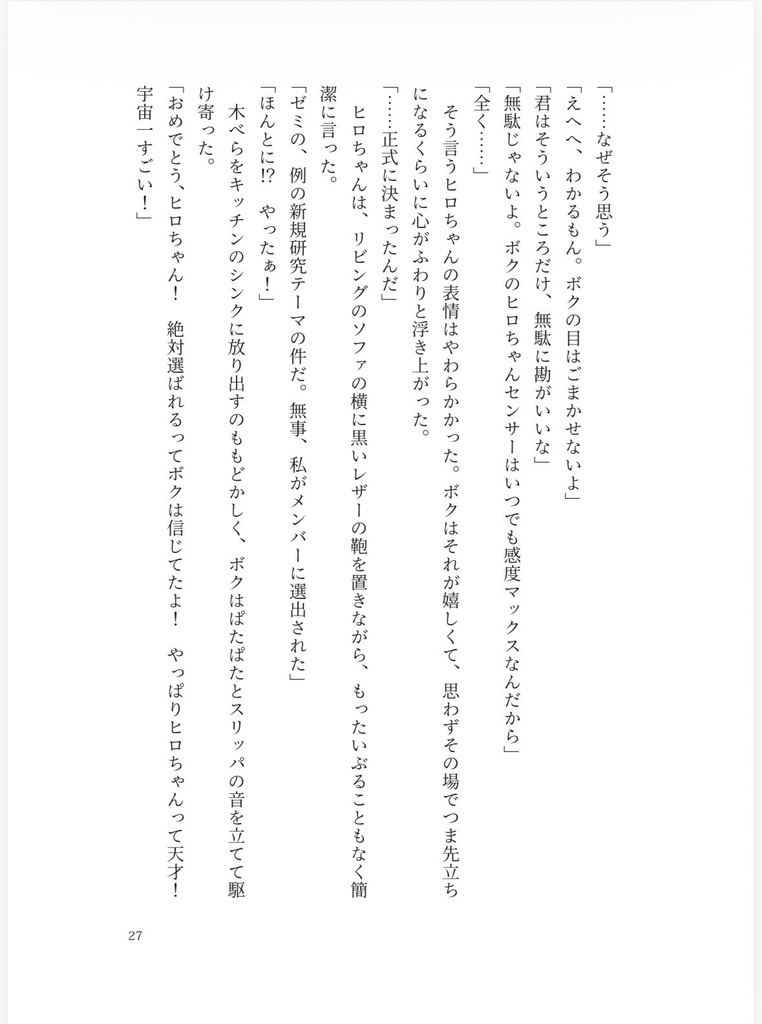 「……なぜそう思う」
「えへへ、わかるもん。ボクの目はごまかせないよ」
「君はそういうところだけ、無駄に勘がいいな」
「無駄じゃないよ。ボクのヒロちゃんセンサーはいつでも感度マックスなんだから」
「全く……」
　そう言うヒロちゃんの表情はやわらかかった。ボクはそれが嬉しくて、思わずその場でつま先立ち
になるくらいに心がふわりと浮き上がった。
「……正式に決まったんだ」
　ヒロちゃんは、リビングのソファの横に黒いレザーの鞄を置きながら、もったいぶることもなく簡
潔に言った。
「ゼミの、例の新規研究テーマの件だ。無事、私がメンバーに選出された」
「ほんとに!?　やったぁ！」
　木べらをキッチンのシンクに放り出すのももどかしく、ボクはぱたぱたとスリッパの音を立てて駆
け寄った。
「おめでとう、ヒロちゃん！　絶対選ばれるってボクは信じてたよ！　やっぱりヒロちゃんって天才！
宇宙一すごい！」
27